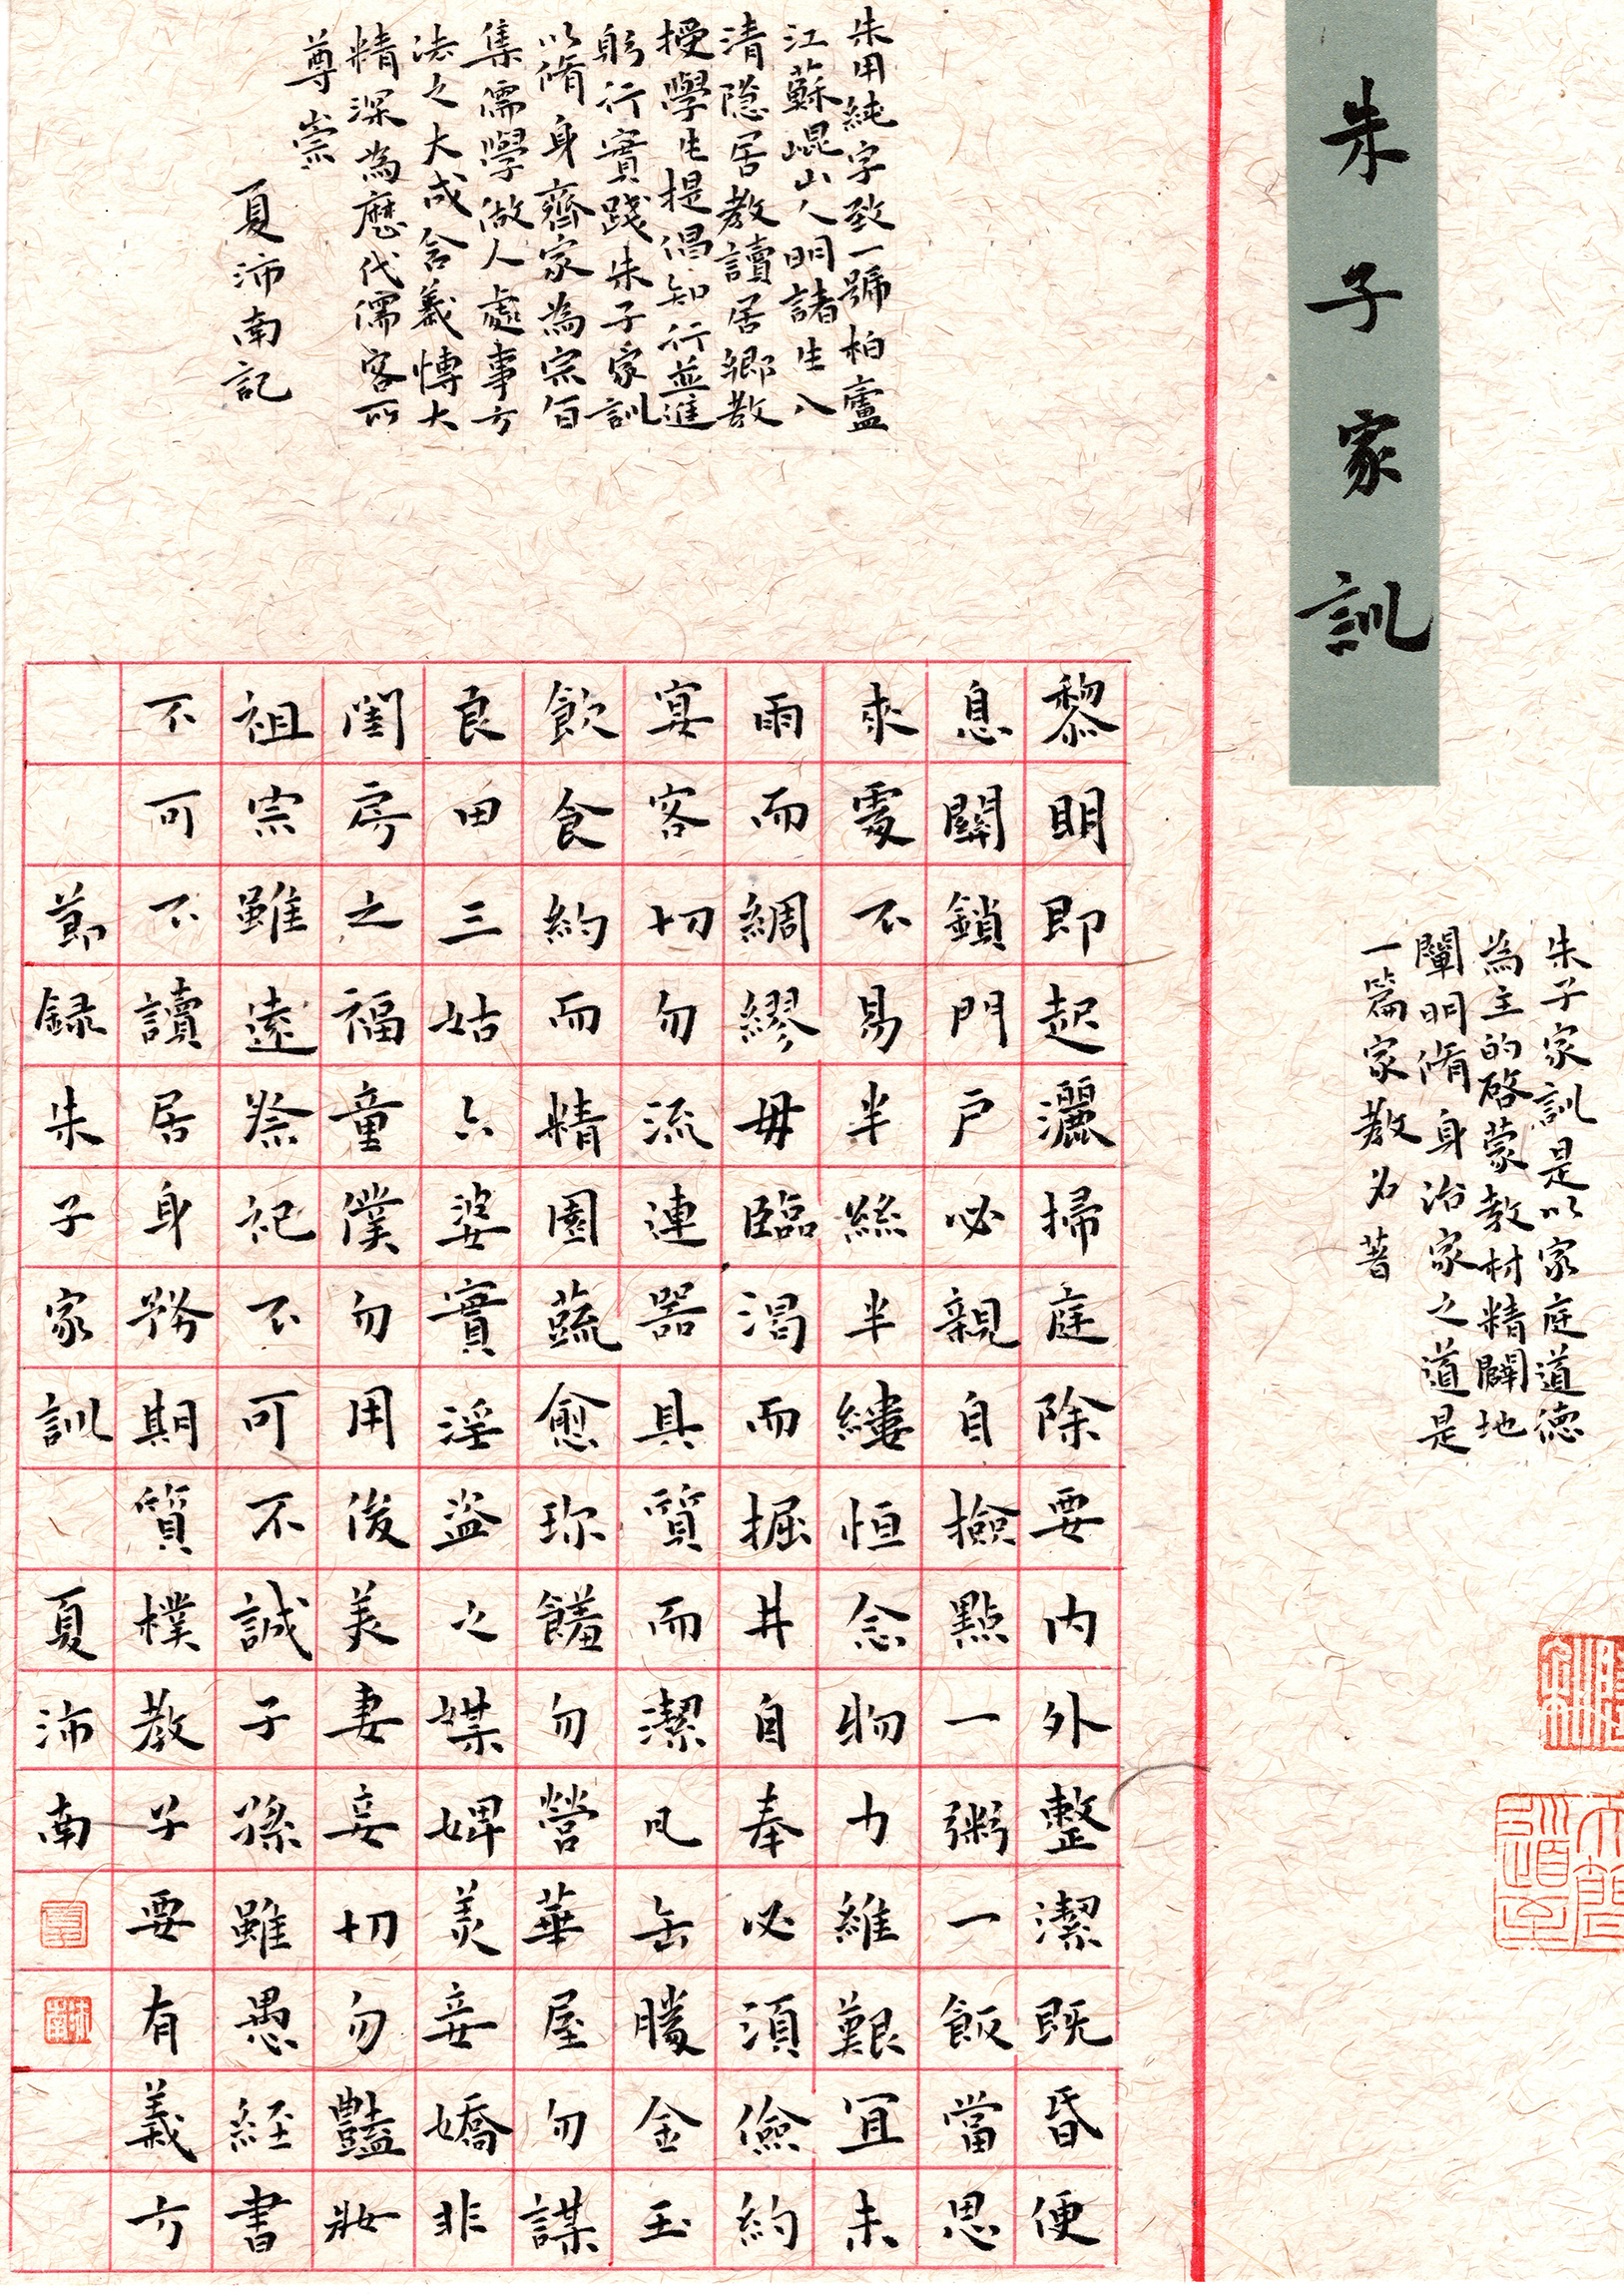 朱子家訓
朱子家訓是以家庭道德
為主的啓蒙教材精闢地
闡明脩身治家之道是
一篇家教名著
朱用純字致一號柏廬
江蘇崐山人明諸生入
清隐居教讀居鄉教
授學生提倡知行並進
躬行實踐朱子家訓
以脩身齊家為宗旨
集儒學做人處事方
法之大成含義博大
精深為歷代儒客所
尊崇
夏沛南記
黎明即起灑掃庭除要内外整潔既昏便
息關鎖門戶必親自撿點一粥一飯當思
來處不易半絲半縷恒念物力維艱宜未
雨而綢繆毋臨渴而掘井自奉必須儉約
宴客切勿流連器具質而潔瓦缶勝金玉
飲食約而精園蔬愈珍饈勿營華屋勿謀
良田三姑六婆實淫盜之媒婢美妾嬌非
閨房之福童僕勿用俊美妻妾切勿豔妝
祖宗雖遠祭祀不可不誠子孫雖愚經書
不可不讀居身務期質樸教子要有義方
節録朱子家訓 夏沛南
沛南